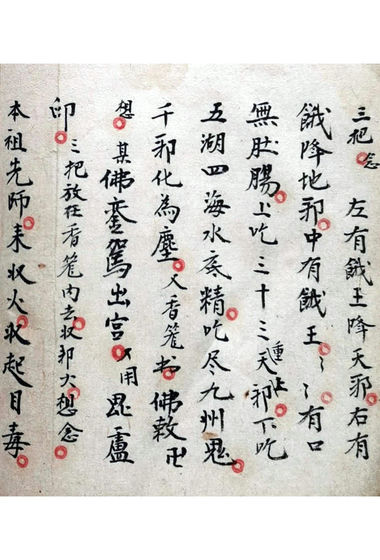 三把念 左有餓王降天邪右有
餓降地邪中有餓王〻〻有口
無肚腸上吃三十三天邪重上下吃
五湖四海水底精吃尽九州鬼
千邪化為塵又香笼书佛敕卍
想 其佛銮驾出宫又用毘盧
印 三把放在香笼内去收邪火想念
本祖先師来收火收起目毒